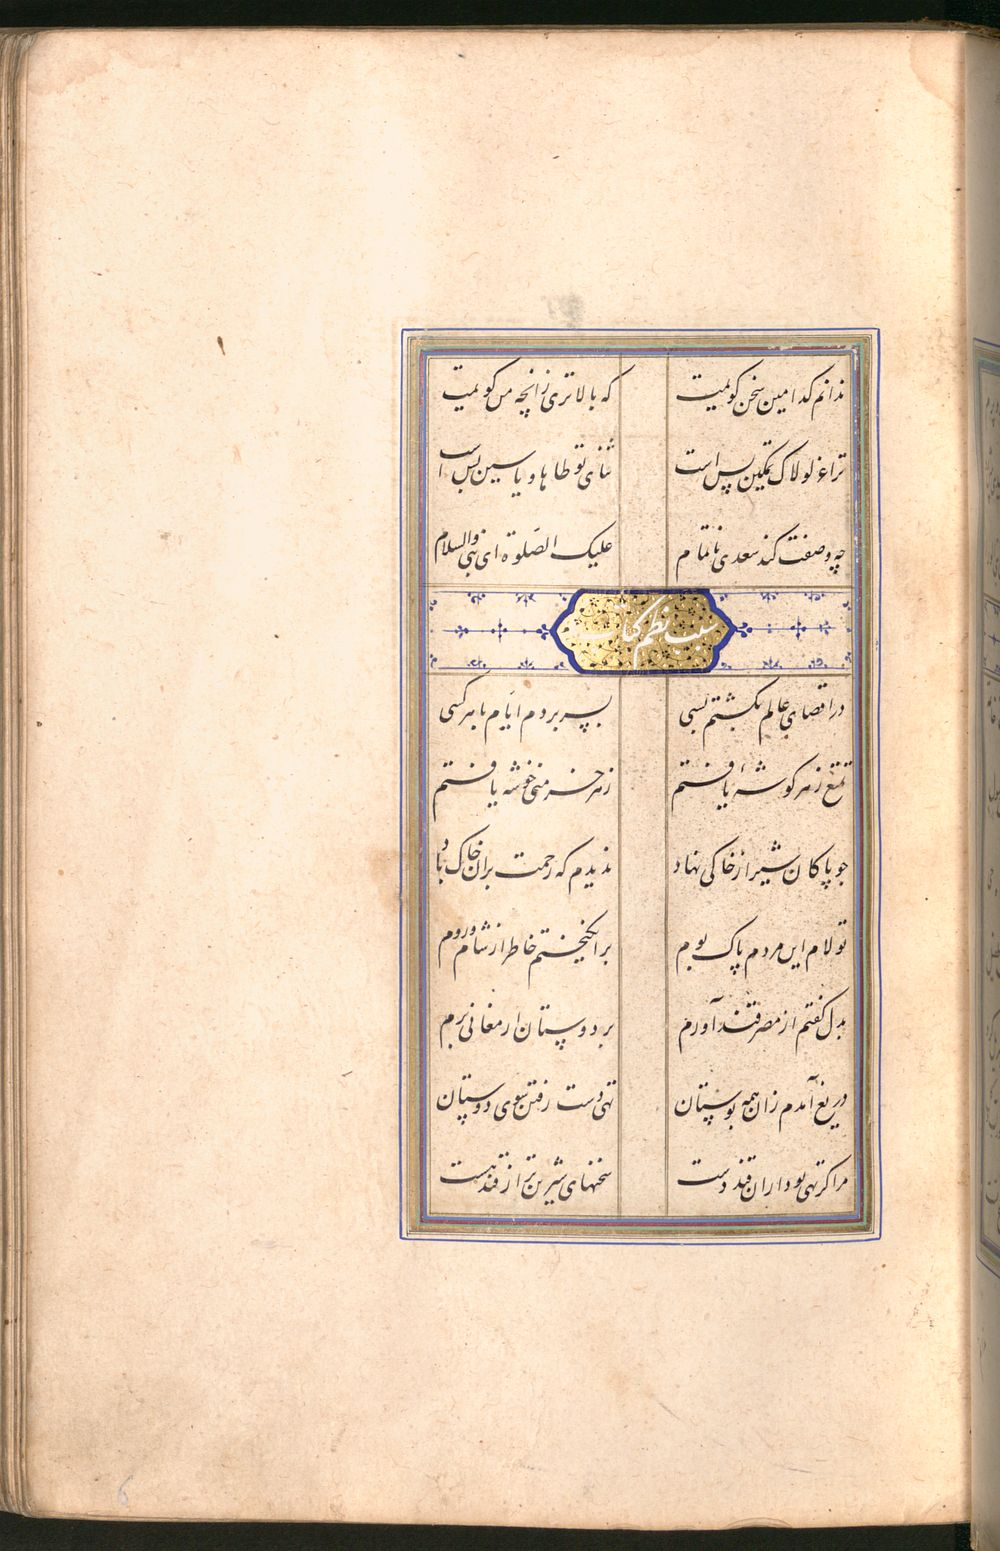 ندانم کدامین سخن گویمت که بالاتری زانچه من گویمت
ترا عز لولاک تمکین بس است ثنای تو طاها و یاسین بس است
چه وصفت کند سعدی ناتمام علیک الصلوة ای نبی والسلام
سبب نظم کتاب
در اقصای عالم بگشتم بسی بسر بردم ایام با هر کسی
تمتع ز هر گوشهٔ یافتم ز هر خرمنی خوشه یافتم
چو پاکان شیراز خاکی نهاد ندیدم که رحمت بران خاک باد
تولای مردم پاک بوم برانگیختم خاطر از شام و روم
بدل گفتم از مصر قند آورم بر دوستان ارمغانی برم
دریغ آمدم زان همه بوستان تهی دست رفتن سوی دوستان
مرا گر تهی بود ازان قند دست سخنهای شیرین تر از قند هست